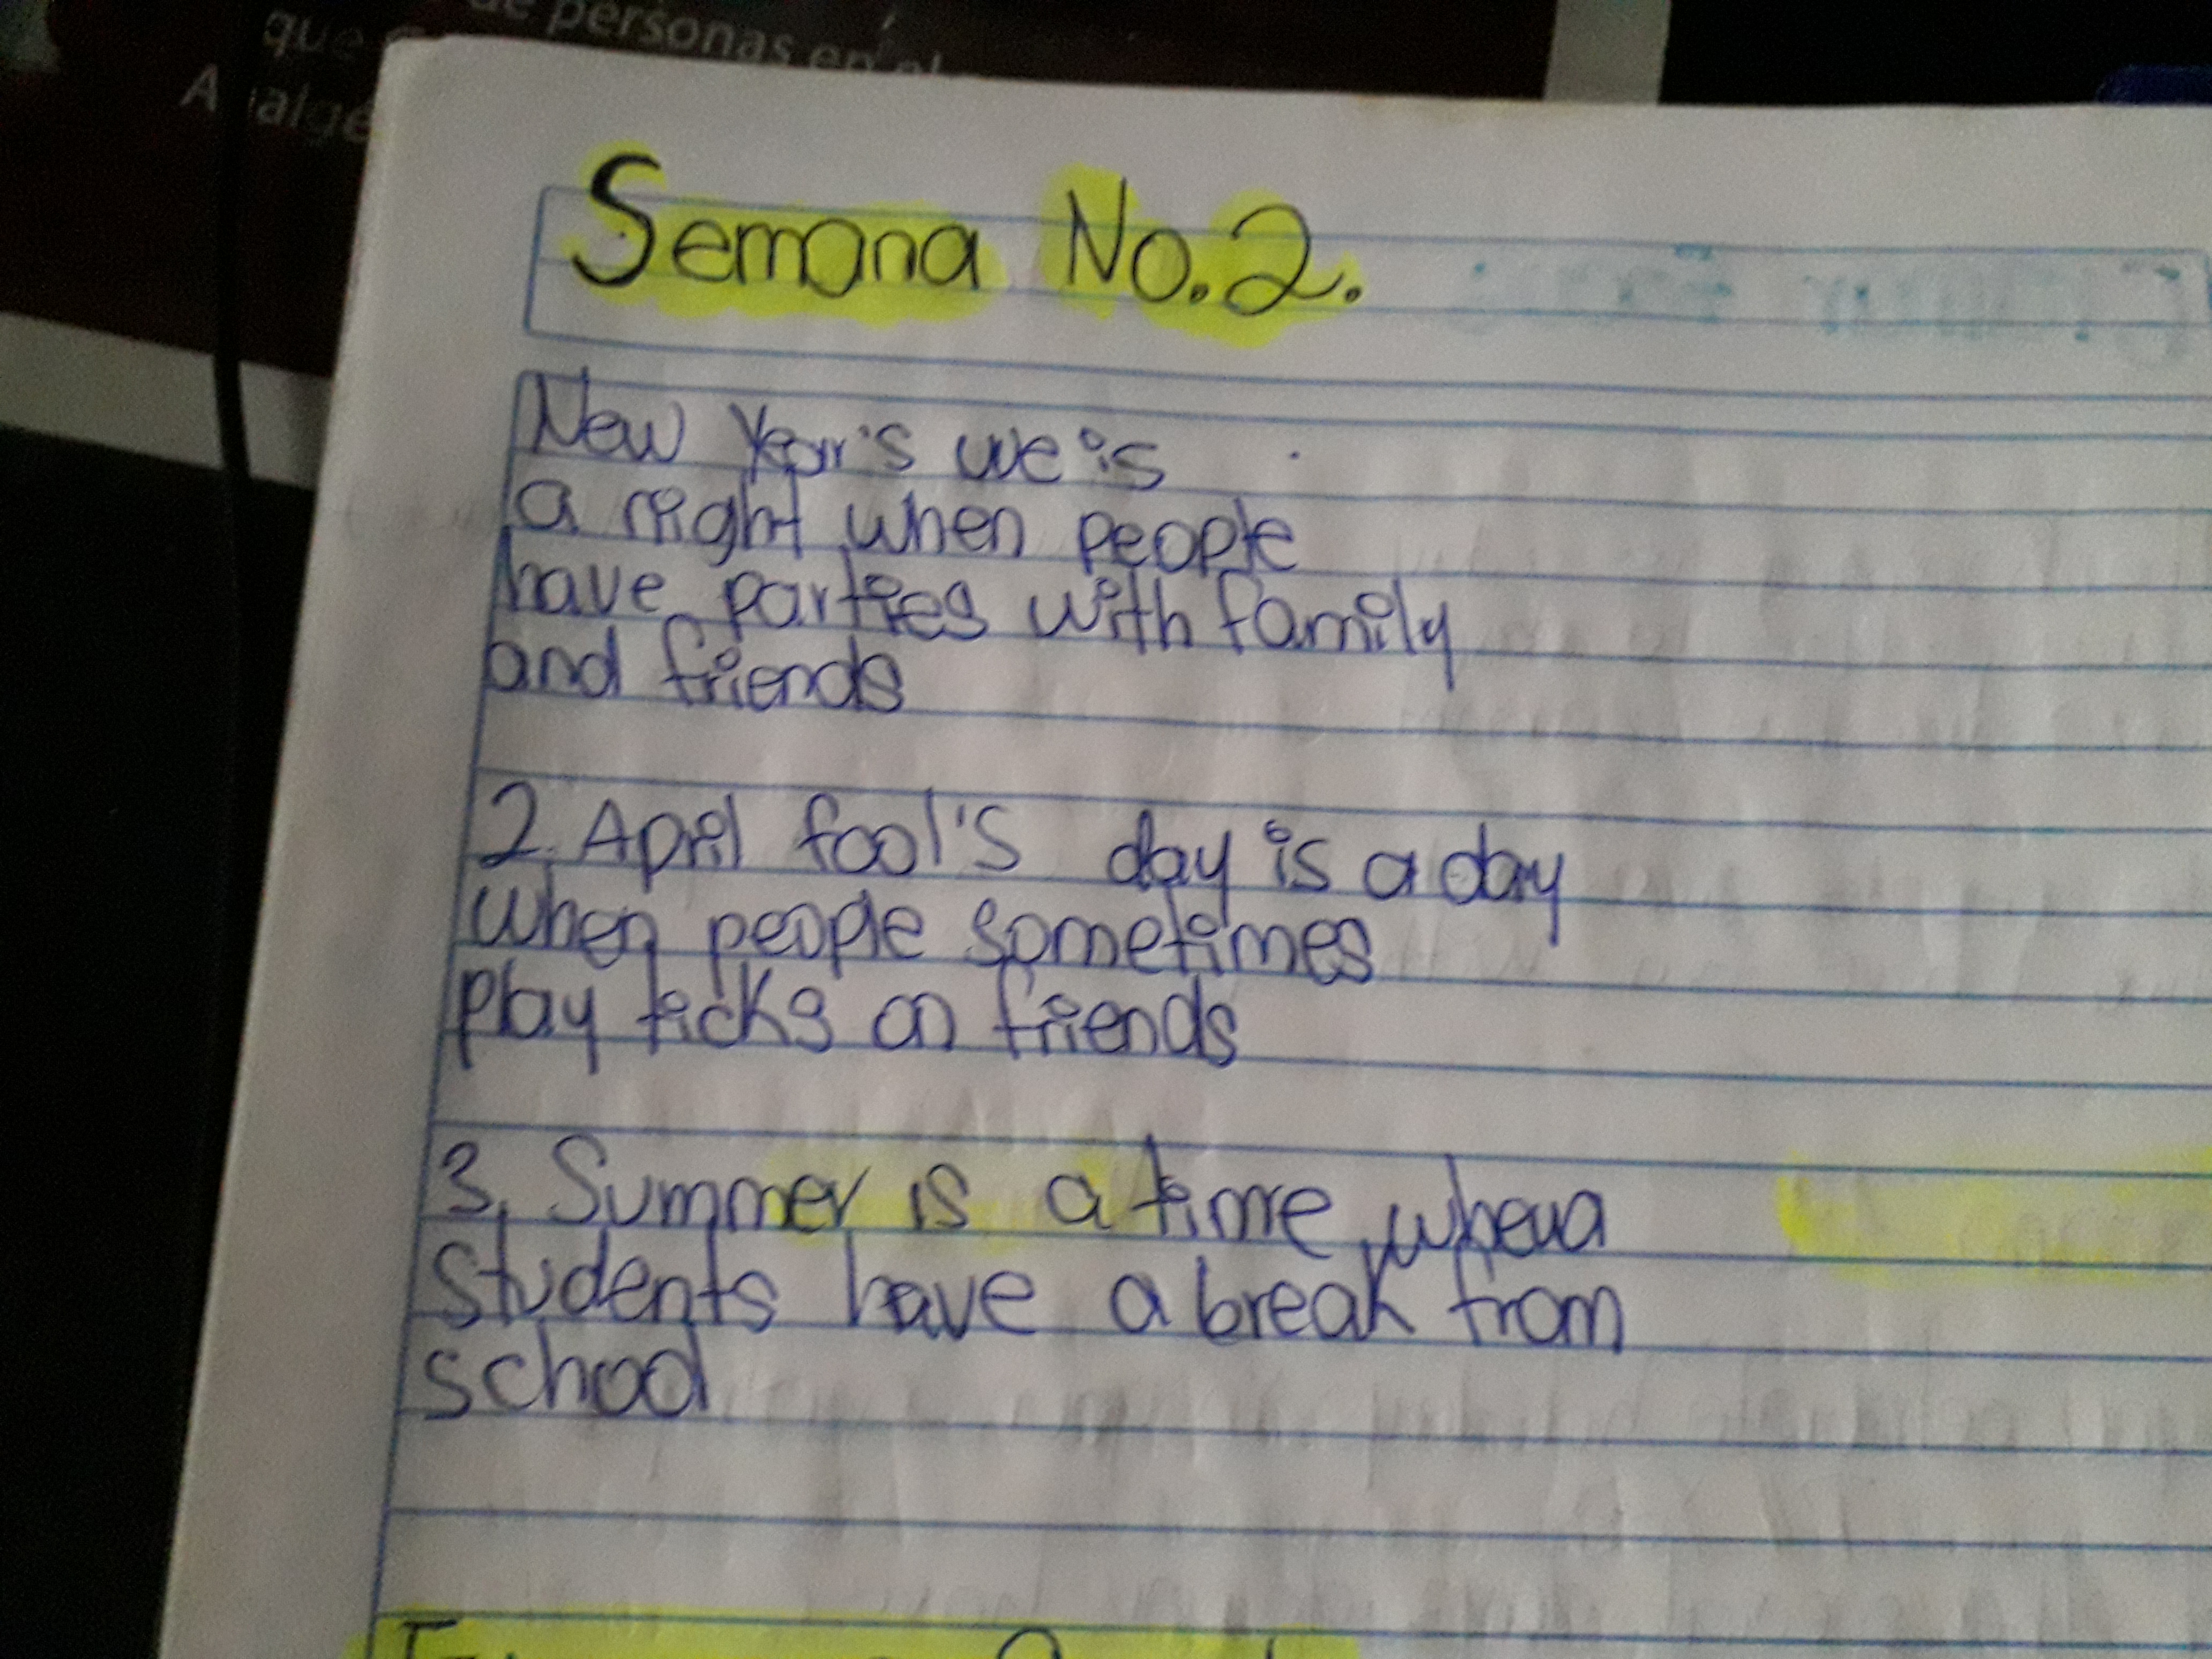 que de personas en el
Analgé
Semana No.2.
New Year's we is
a night when people
have parties with family
and friends
2. April fool's day is a day
when people sometimes
play ticks on friends
3. Summer is a time when a
students have a break from
school